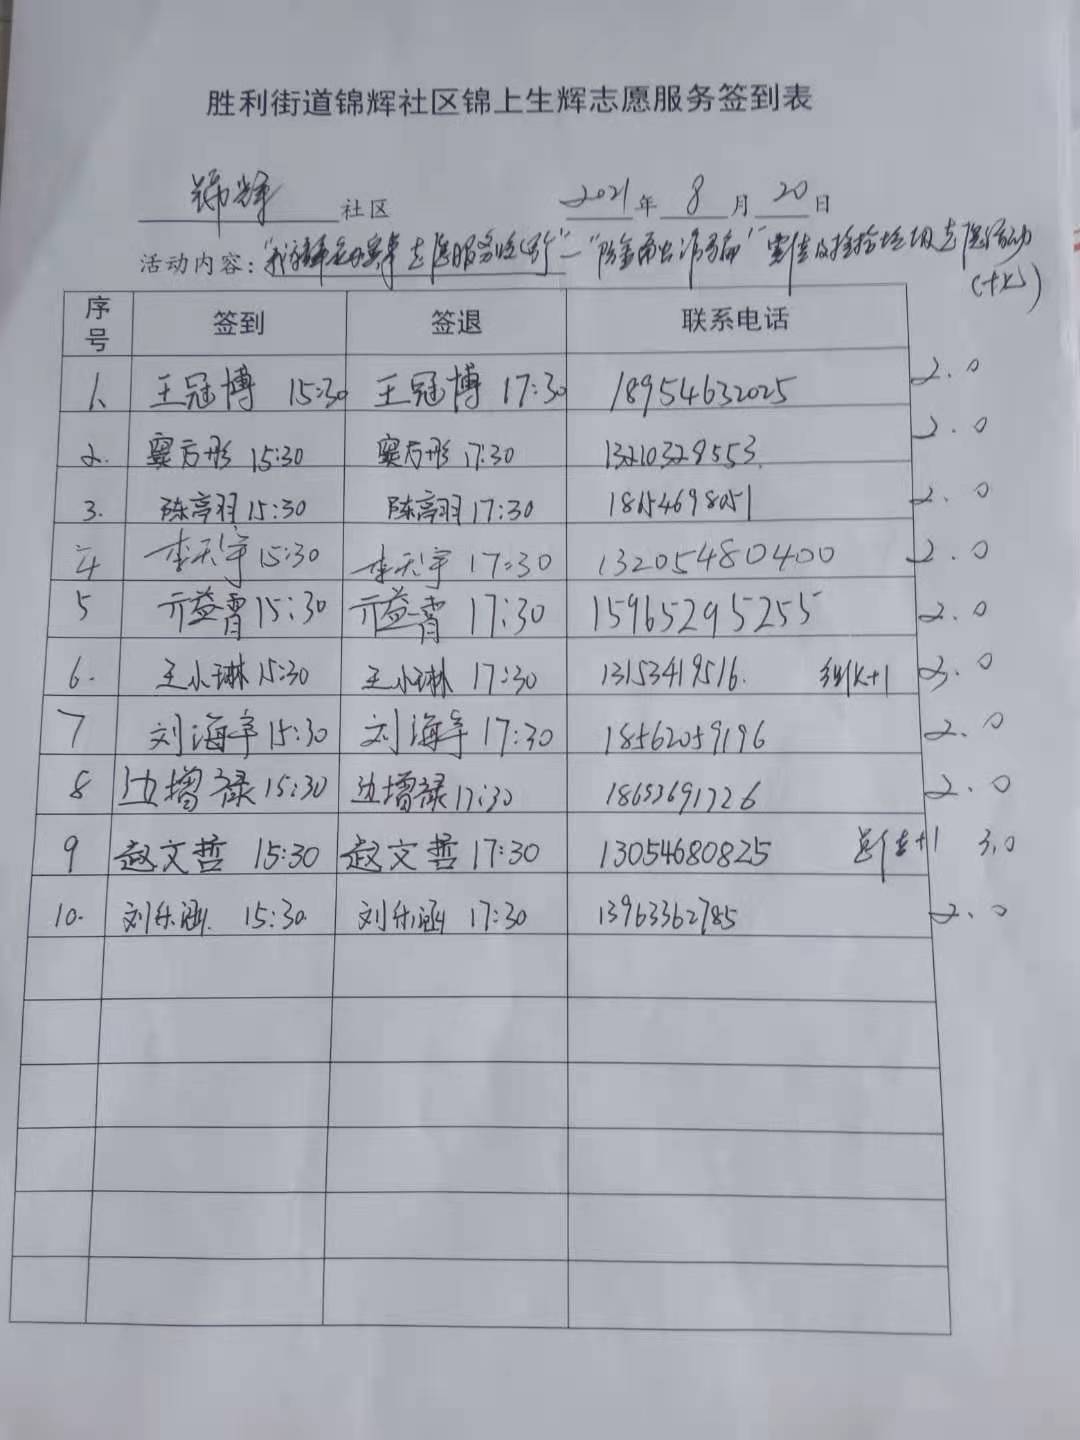 胜利街道锦辉社区锦上生辉志愿服务签到表
锦辉 社区 2021 年 8 月 20 日
活动内容: 志愿服务 宣传及捡拾垃圾志愿活动
序号 签到 签退 联系电话
1. 王冠博 15:30 王冠博 17:30 18954632025 2.0
2. 窦方彤 15:30 窦方彤 17:30 13210329553. 2.0
3. 陈高羽 15:30 陈高羽 17:30 18654698051 2.0
4 李天宇 15:30 李天宇 17:30 13205480400 2.0
5 亓益霄 15:30 亓益霄 17:30 15965295255 2.0
6. 王小琳 15:30 王小琳 17:30 13153419516. +1 3.0
7 刘海宇 15:30 刘海宇 17:30 18562059196 2.0
8 边增禄 15:30 边增禄 17:30 18653691726 2.0
9 赵文哲 15:30 赵文哲 17:30 13054680825 +1 3.0
10. 刘乐涵 15:30 刘乐涵 17:30 13963362785 2.0